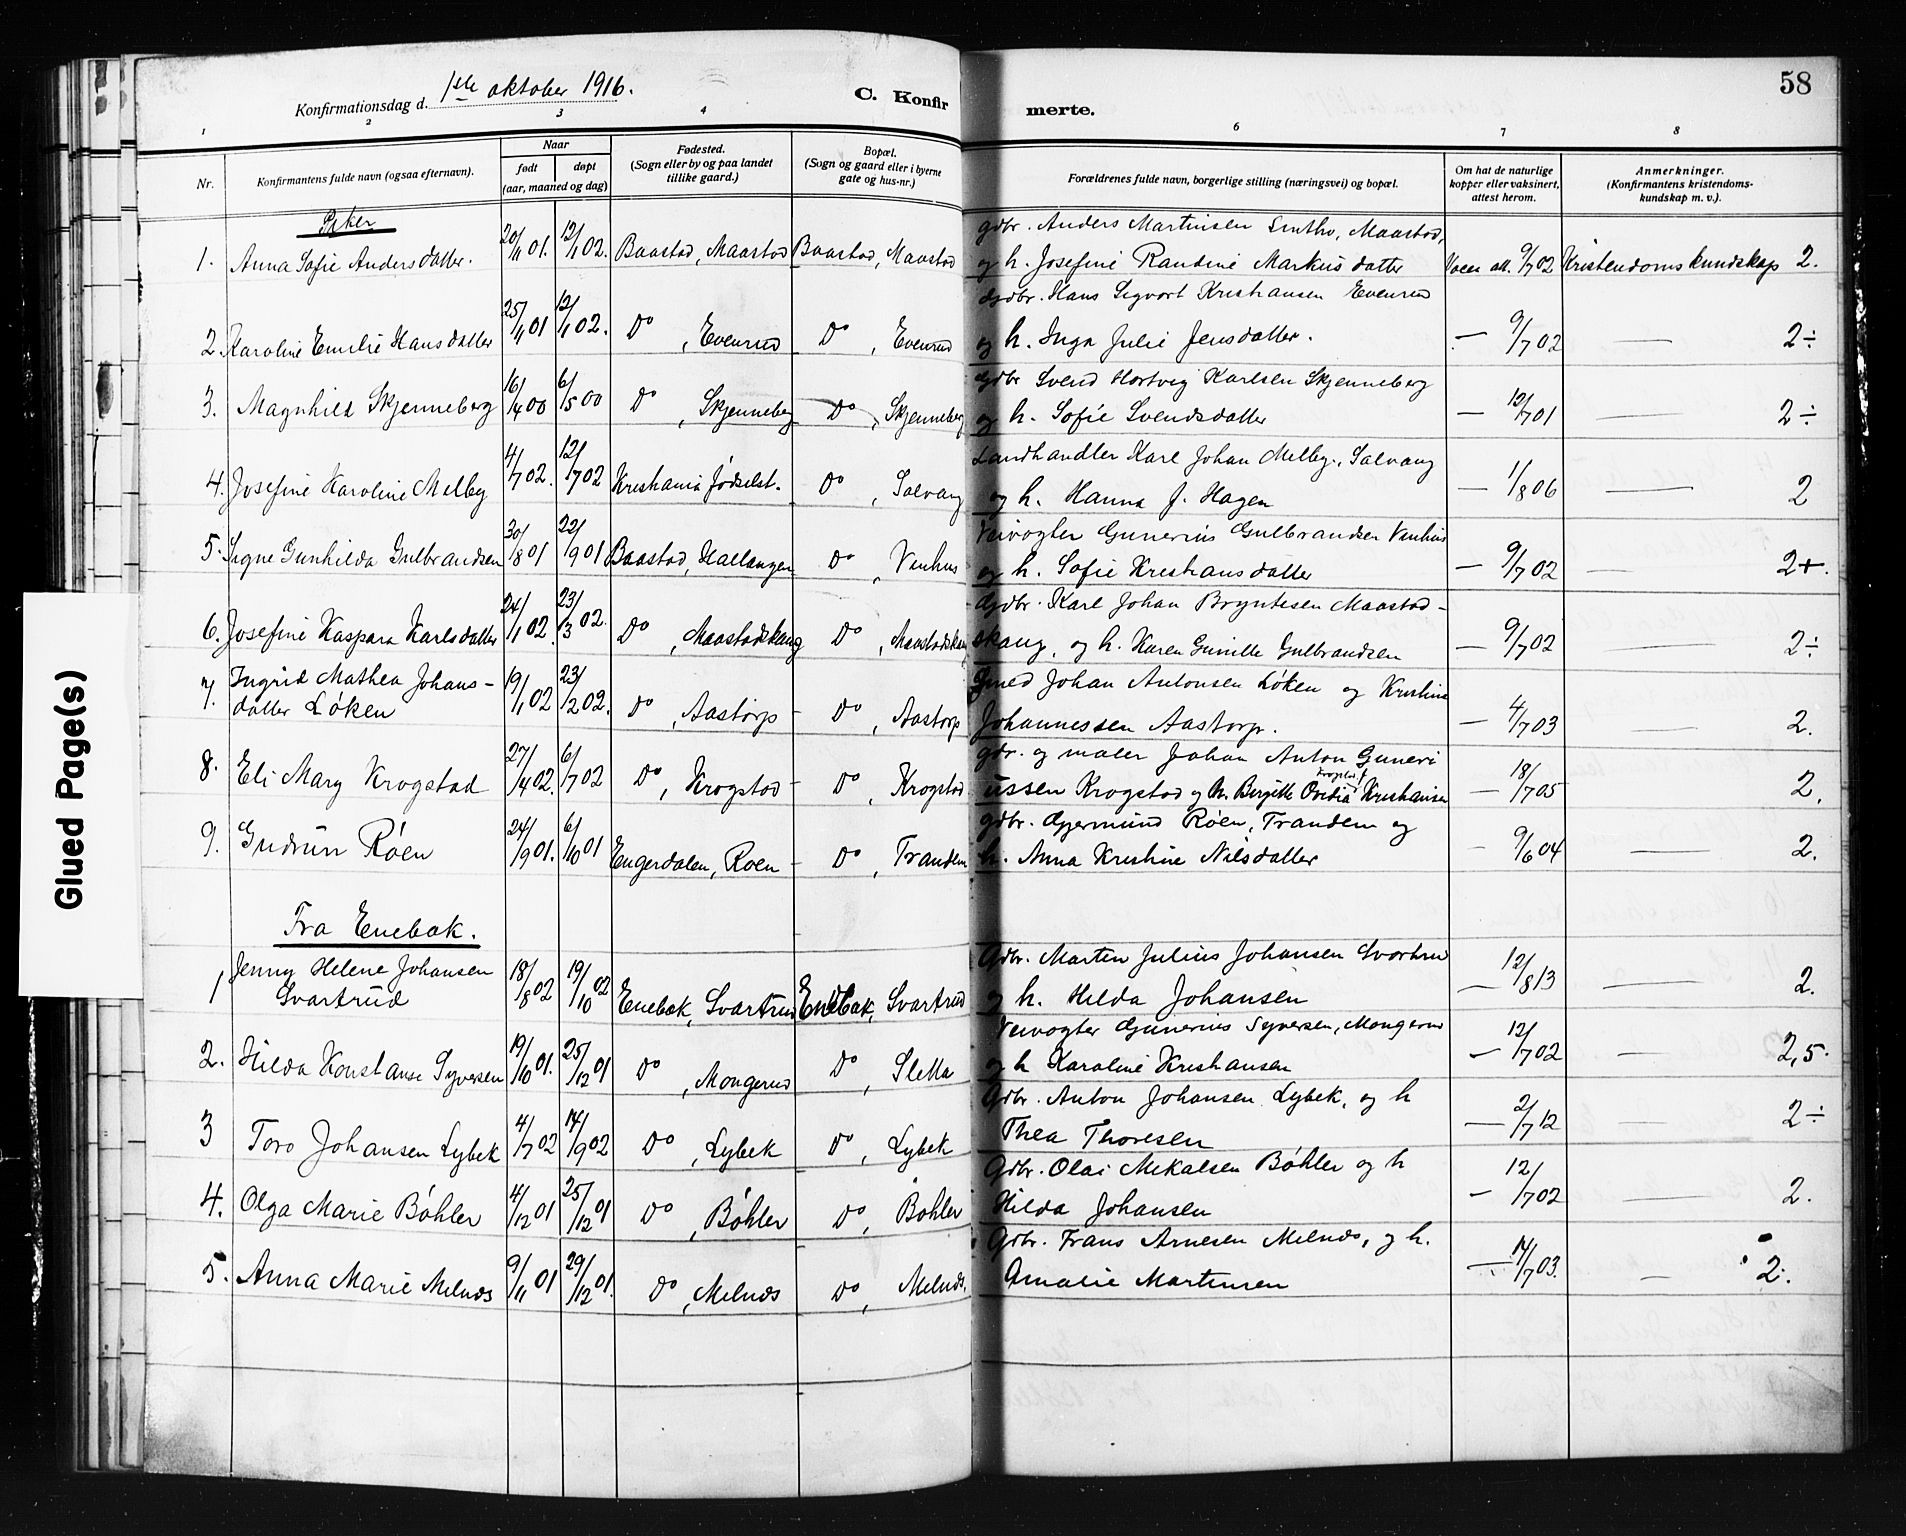 Konfirmationsdag d. 1ste oktober 1916.
C. Konfirmerte.
58
1 2 3 4 6 7 8
Nr.
Konfirmantens fulde navn (ogsaa efternavn).
Naar
født døpt
(aar, maaned og dag)
Fødested.
(Sogn eller by og paa landet
tillike gaard.)
Bopæl.
(Sogn og gaard eller i byerne
gate og hus-nr.)
Forældrenes fulde navn, borgerlige stilling (næringsvei) og bopæl.
Om hat de naturlige
kopper eller vaksinert,
attest herom.
Anmerkninger.
(Konfirmantens kristendoms-
kundskap m. v.).
Piker
gdbr. Anders Martinsen Maastad,
1. Anna Sofie Andersdatter. 20/11 01. 12/1 02. Baastad, Maastad Baastad, Maastad og h. Josefine Randine Markusdatter Vacc att. 9/7 02 Kristendomskundskap 2.
Gdbr. Hans Sigvart Kristiansen Evenrud
2. Karoline Emilie Hansdatter 25/11 01 12/1 02. Do, Evenrud Do, Evenrud og h. Inga Julie Jensdatter. — 9/7 02 — 2÷
Gdbr Svend Hartvig Karlsen Skjenneberg
3. Magnhild Skjenneberg 16/4 00 6/5 00 Do, Skjenneberg Do, Skjenneberg og h. Sofie Svendsdatter — 12/7 01 — 2÷
Landhandler Karl Johan Melby, Salvang
4. Josefine Karoline Melby 4/7 02. 12/7 02 Kristiania Fødselst. Do, Salvang og h. Hanna J. Hagen — 1/8 06 — 2
Veivogter Gunerius Gulbrandsen Venhus
5. Signe Gunhilda Gulbrandsen 30/8 01 22/9 01 Baastad, Hallangen Do, Venhus og h. Sofie Kristiansdatter — 9/7 02 — 2+.
Gdbr. Karl Johan Bryntesen Maastad-
6. Josefine Kaspara Karlsdatter 24/1 02 23/3 02. Do, Maastadskaug Do, Maastadskaug skaug, og h. Karen Gunille Gulbrandsen — 9/7 02 — 2÷
7. Ingrid Mathea Johans- 19/1 02 23/2 02. Smed Johan Antonsen Løken og Kristine
datter Løken Do, Aastorp Do, Aastorp Johannessen Aastorp. — 4/7 03 — 2.
gdr. og maler Johan Anton Guneri
8. Eli Mary Krogstad 27/4 02. 6/7 02 Do, Krogstad Do, Krogstad ussen Krogstad og h. Birgitte Ovidia Kristiansen — 18/7 05 2.
gdbr. Gjermund Røen, Trandem og
9. Gudrun Røen 24/9 01. 6/10 01 Engerdalen, Røen Do, Trandem h. Anna Kristine Nilsdatter — 9/6 04 2.
Fra Enebak.
1 Jenny Helene Johansen 18/8 02 19/10 02 Gdbr. Martin Julius Johansen Svartrud
Svartrud Enebak, Svartrud Enebak, Svartrud og h. Hilda Johansen — 12/8 13 — 2.
Veivogter Gunerius Syversen, Mongerud
2. Hilda Konstanse Syversen 19/10 01. 25/12 01 Do, Mongerud Do, Sletta og h Karoline Kristiansen — 12/7 02 — 2,5.
Gdbr. Anton Johansen Lybek, og h
3 Toro Johansen Lybek 4/7 02 14/9 02 Do, Lybek Do, Lybek Thea Thoresen — 2/7 12 — 2÷
Gdbr. Olai Mikalsen Bøhler og h
4. Olga Marie Bøhler 4/12 01 25/12 01 Do, Bøhler Do, Bøhler Hilda Johansen — 12/7 02 — 2.
Gdbr. Frans Arnesen Melnes, og h.
5. Anna Marie Melnes 9/11 01 29/12 01. Do, Melnes Do, Melnes. Amalie Martinsen — 14/7 03. — 2÷
Glued Page(s)